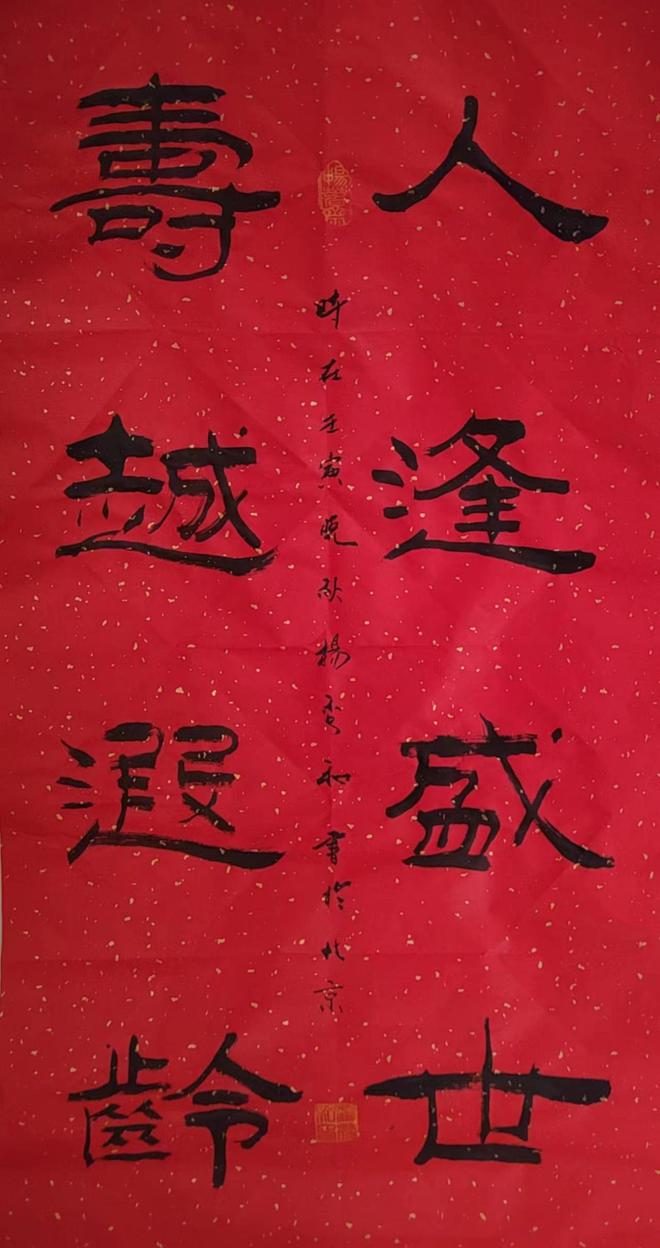 人逢盛世
壽越遐齡
時在壬寅晚秋楊秀和書於北京